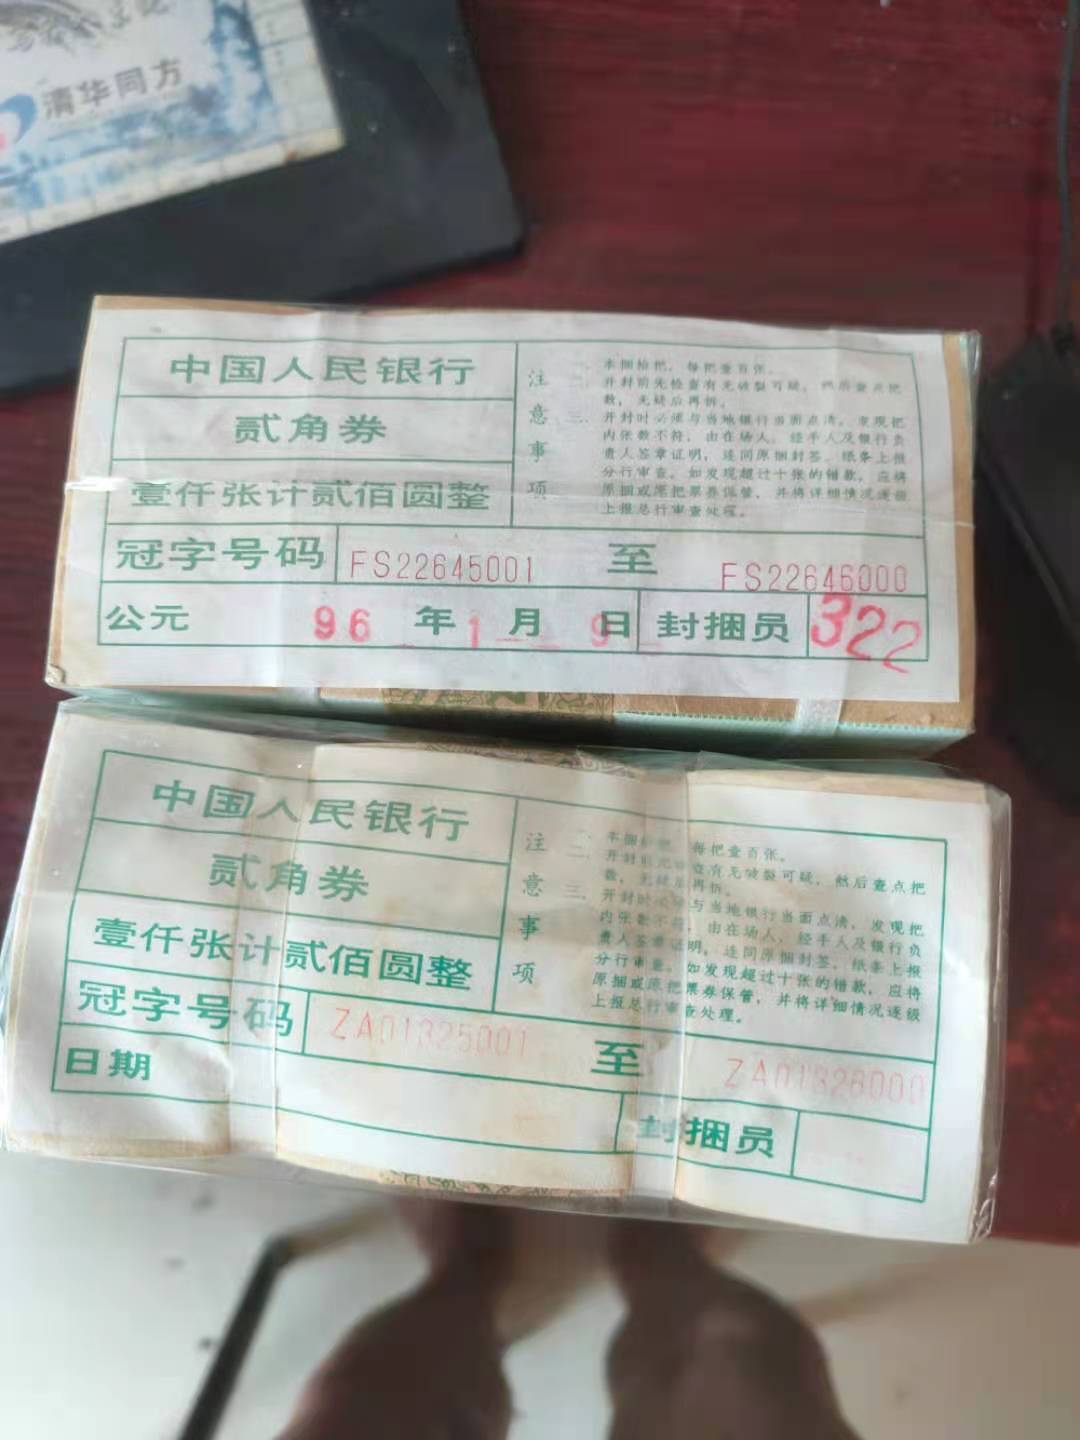 清华同方
中国人民银行
贰角券
壹仟张计贰佰圆整
注意事项
一、本捆拾把，每把壹百张。
二、开封前先检查有无破裂可疑，然后查点把
数，无疑后再拆。
三、开封时必须与当地银行当面点清，发现把
内张数不符，由在场人、经手人及银行负
责人签章证明，连同原捆封签、纸条上报
分行审查。如发现超过十张的错款，应将
原捆或原把票券保管，并将详细情况逐级
上报总行审查处理。
冠字号码 FS22645001 至 FS22646000
公元 96 年 1 月 9 日 封捆员 322
中国人民银行
贰角券
壹仟张计贰佰圆整
注意事项
本捆拾把，每把壹百张。
二、开封前先检查有无破裂可疑，然后查点把
数，无疑后再拆。
三、开封时必须与当地银行当面点清，发现把
内张数不符，由在场人、经手人及银行负
责人签章证明，连同原捆封签、纸条上报
分行审查。如发现超过十张的错款，应将
原捆或原把票券保管，并将详细情况逐级
上报总行审查处理。
冠字号码 ZA01325001 至 ZA01326000
日期 封捆员